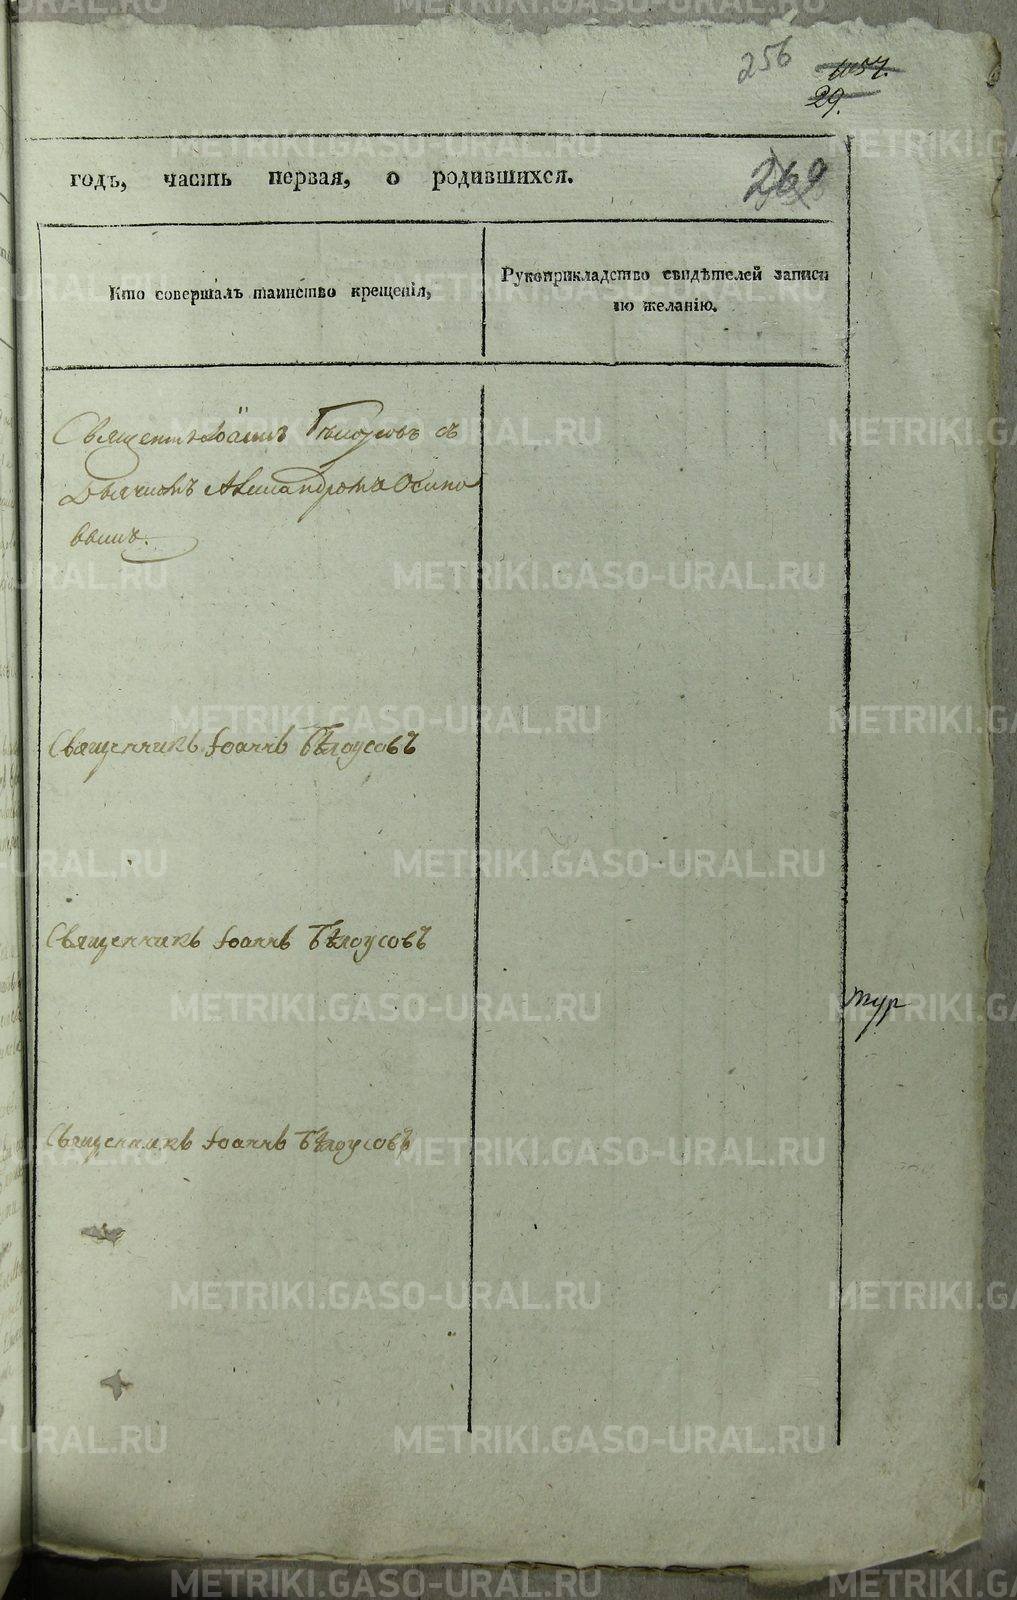 256
1157.
29.
годъ, часть первая, о родившихся.
269
Кто совершалъ таинство крещенія,
Рукоприкладство свидѣтелей записи
по желанію.
Священ Іоаннъ Бѣлоусовъ съ
Дьячкомъ Александромъ Осипо
вымъ.
Священникъ Іоаннъ Бѣлоусовъ
Священникъ Іоаннъ Бѣлоусовъ
тур
Священникъ Іоаннъ Бѣлоусовъ
METRIKI.GASO-URAL.RU